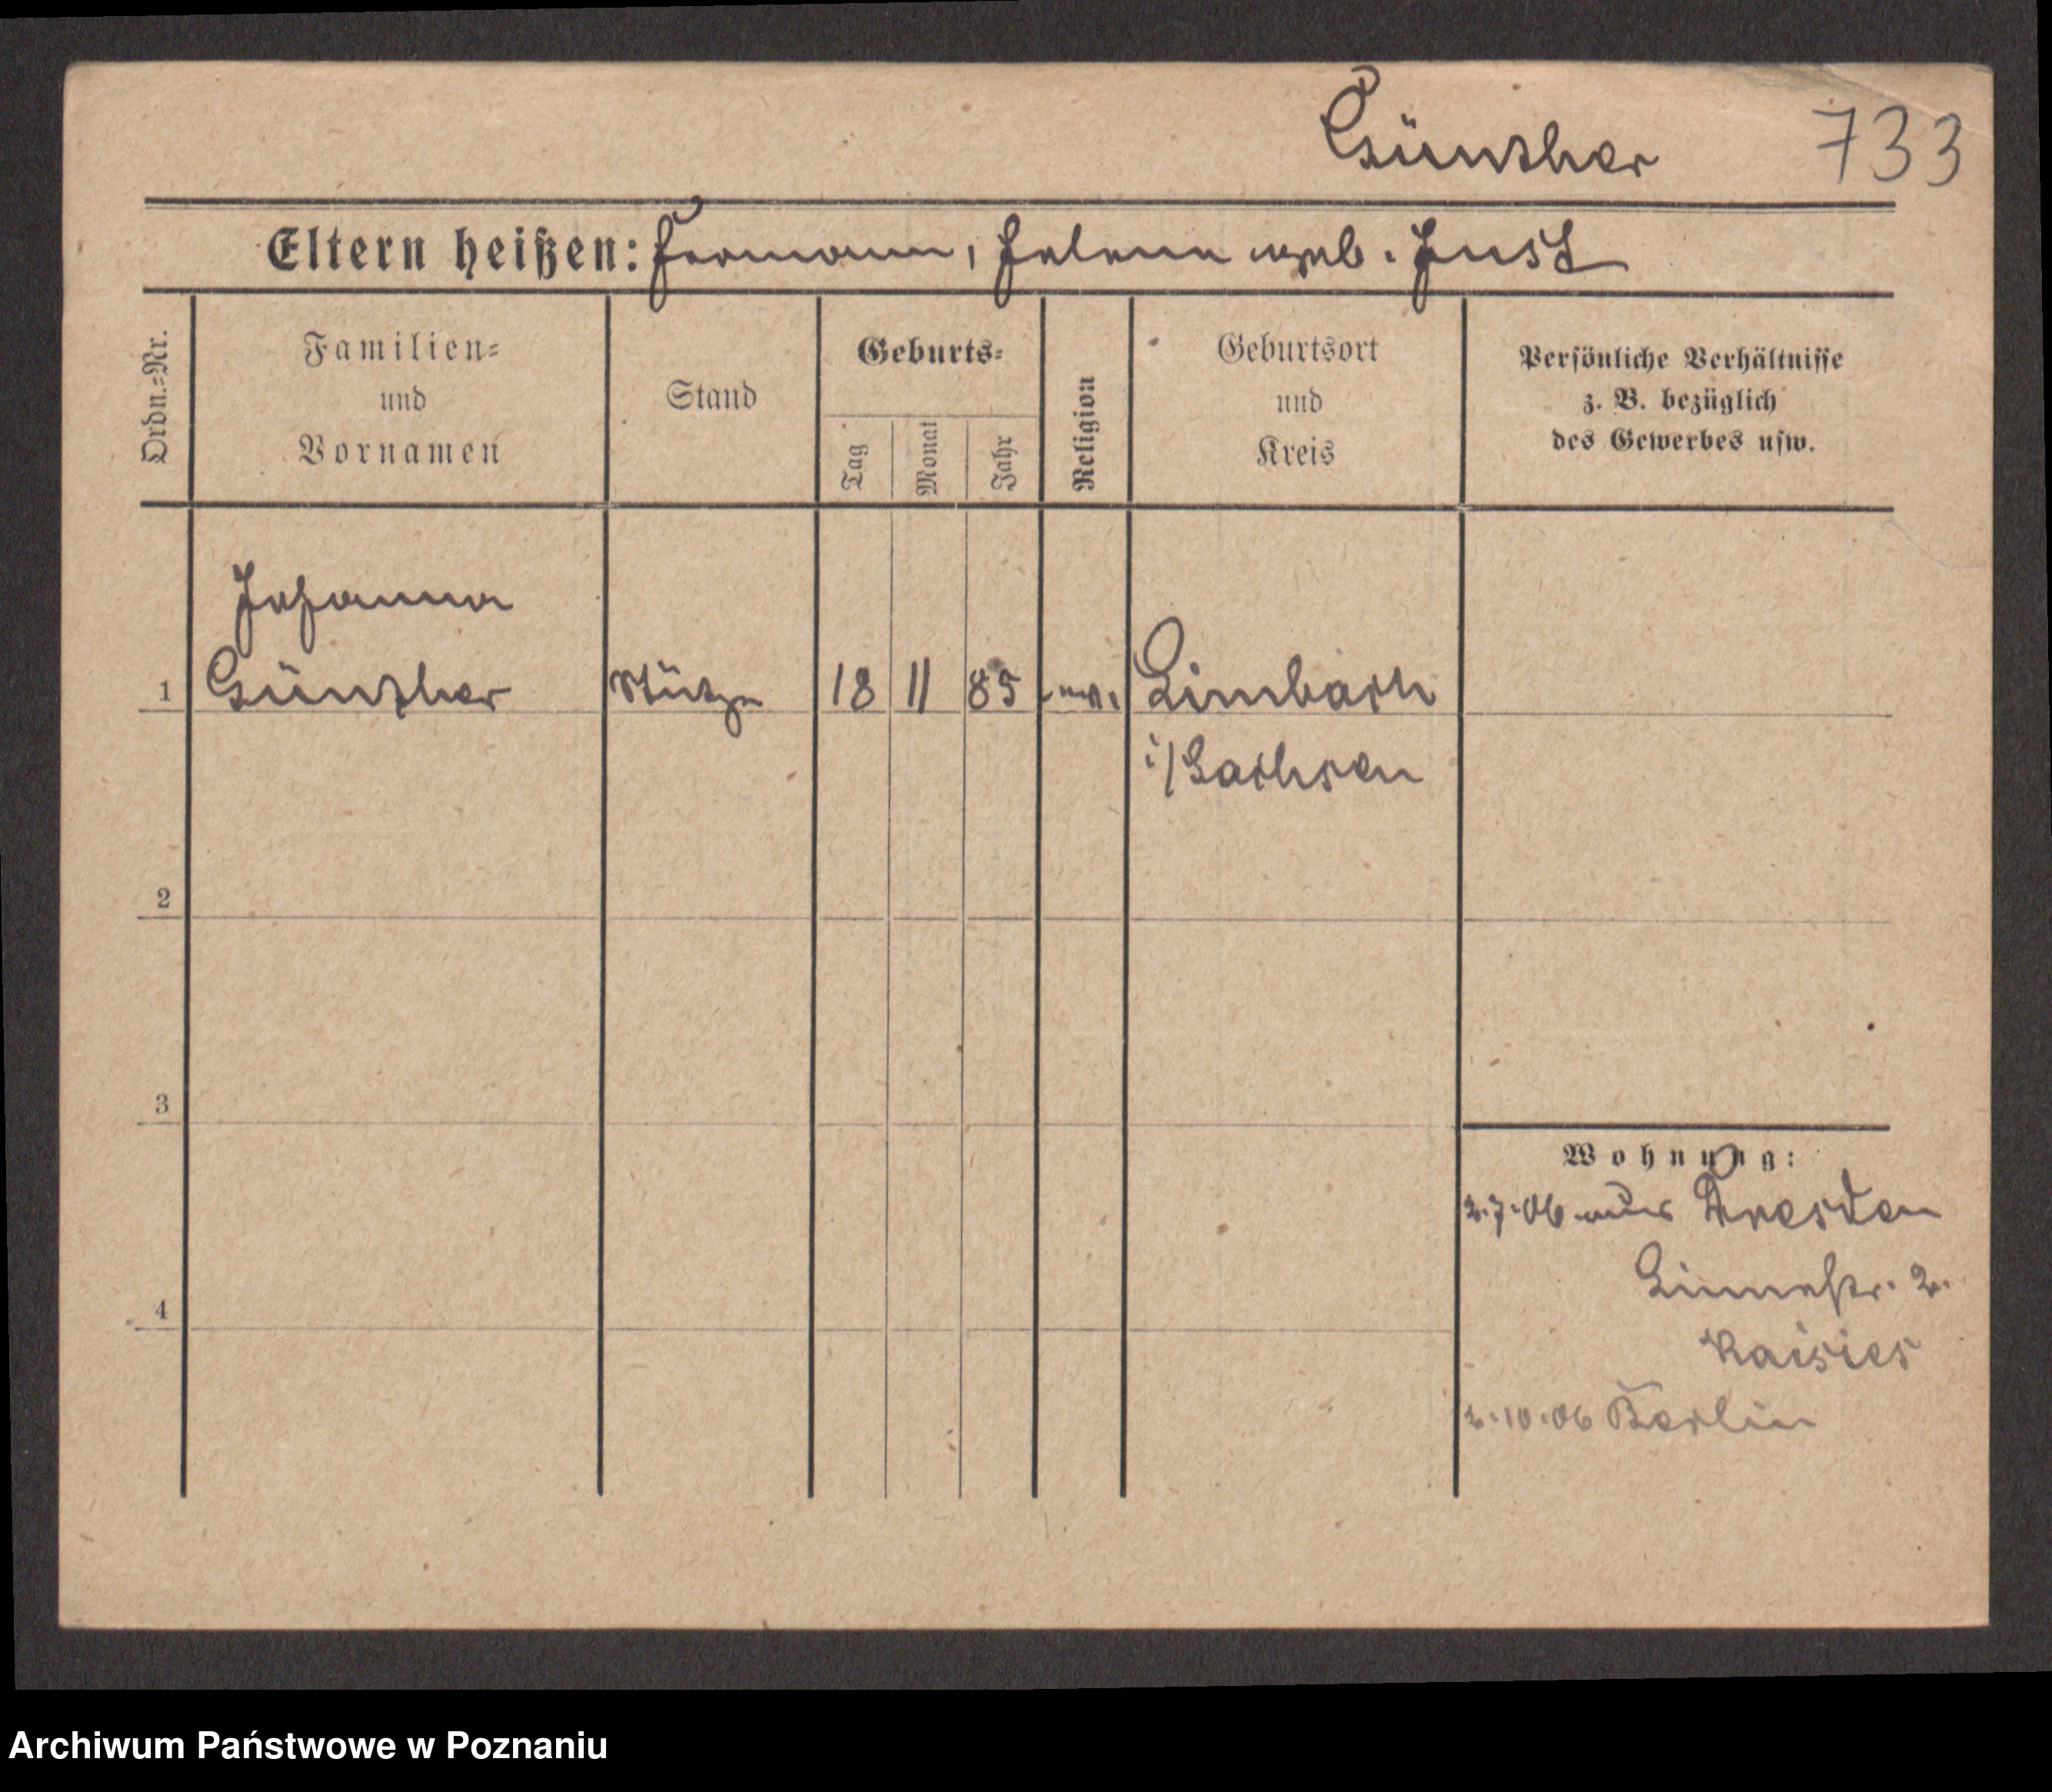 Günther 733
Eltern heißen: Hermann, Helene geb. Just
Ordn.=Nr.
Familien=
und
Vornamen
Stand
Geburts=
Tag
Monat
Jahr
Religion
Geburtsort
und
Kreis
Persönliche Verhältnisse
z. B. bezüglich
des Gewerbes usw.
Johanna
1 Günther Stütze 18 11 85 ev. Limbach
i/Sachsen
2
3
4
Wohnung:
2.7.06 aus Dresden
2.
2.10.06 Berlin
Archiwum Państwowe w Poznaniu